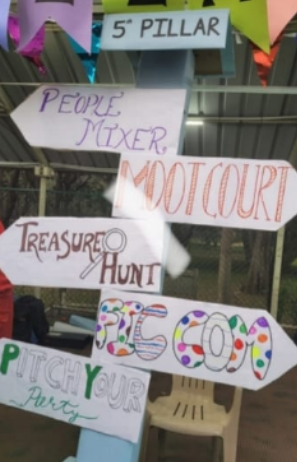 5° PILLAR
PEOPLE
MIXER
MOOTCOURT
TREASURE
HUNT
PIC COM
PITCH YOUR
Party